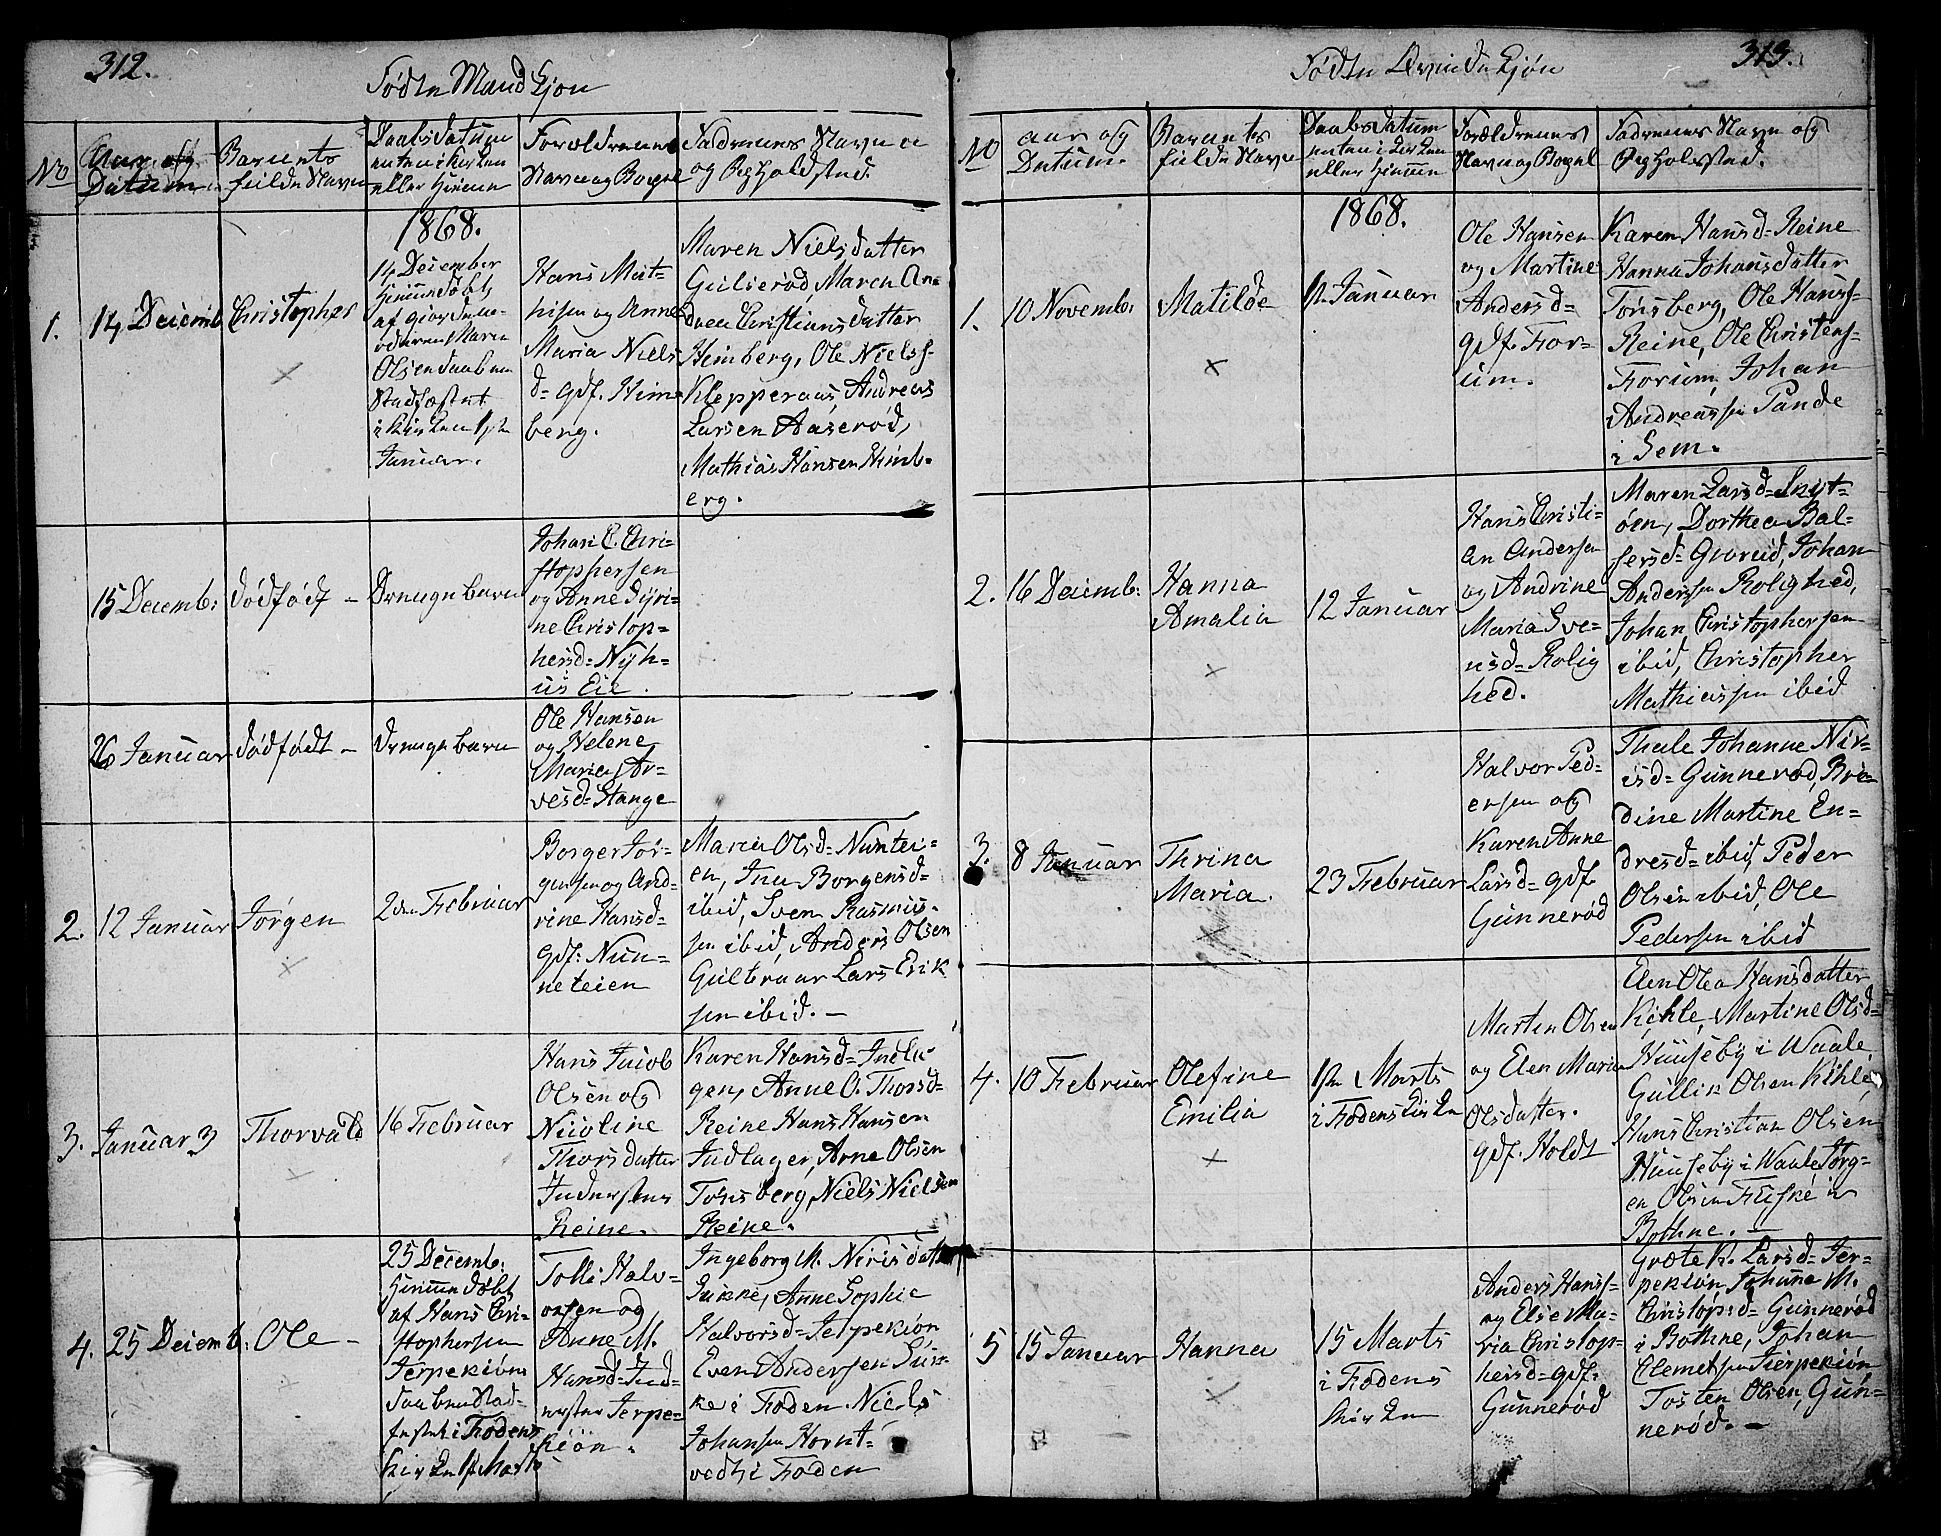 312.
Fødte Mandkjøn
No
Aar og
Datum
Barnets
fulde Navn
Daabsdatum
enten i kirken
eller hiemme
Forældrenes
Navn og Bopæl
Faddernes Navn
og Opholdsted.
1868.
1.
14 Decemb
Christopher
14 December
hjemmedøbt
af Giordemo-
deren Maren
Olsen daaben
Stadfæstet
i Kirken 1ste
Januar.
Hans Mat-
hisen og Anne
Maria Niels
d= gdf. Him-
berg.
Maren Nielsdatter
Gulserød, Maren An-
drea Christiansdatter
Himberg, Ole Nielss-
Klepperaas, Andreas
Larsen Aaserød,
Mathias Hansen Himb-
erg.
15 Decemb:
dødfødt -
Drengebarn
Johan C. Chri-
stophersen
og Anne Dyri-
ne Christop-
hersd= Nyh-
us Eie.
26 Januar
dødfødt -
Drengebarn
Ole Hansen
og Helene
Maria Ar-
vesd= Stange
2.
12 Januar
Jørgen
2den Februar
Borger Jør-
gensen og And-
rine Hansd-
gdf: Nun-
neteien
Maria Olsd= Nuntei-
en, Ina Borgersd=
ibid, Sven Rasmus-
sen ibid, Anders Olsen
Gulbraar Lars Erik
sen ibid. -
3.
Januar 3
Thorvald
16 Februar
Hans Jacob
Olsen og
Nicoline
Thorsdatter
Inderstens
Reine.
Karen Hansd= Indla-
gen, Anne O. Thorsd=
Reine Hans Hansen
Indlager, Arne Olsen
Tønsberg, Niels Nielsen
Reine.
4.
25 Decemb:
Ole -
25 Decemb:
hjemmedøbt
af Hans Chri-
stophersen
Jerpekiøn
daaben Stad-
festet i Fodens
kirke 1ste Marts
Tolle Halv-
orsen og
Anne M.
Hansd= Ind-
erster Jerpe-
kiøn.
Ingeborg M. Nirisdatter
Sukke, Anne Sophie
Halvorsd= Jerpekiøn
Even Andersen Sun-
ke i Foden Niels
Johansen Hornt-
vedt i Foden
313.
Fødte Qvindekjøn
No
aar og
Datum.
Barnets
fulde Navn
Daabsdatum
enten i kirken
eller hiemme
Forældrenes
Navn og Bopæl
Faddernes Navn og
Opholdssted.
1868.
1.
10 Novemb:
Matilde
1ste Januar
Ole Hansen
og Martine
Andersd=
gdf. For-
um.
Karen Hansd= Reine
Hanna Johansdatter
Tønsberg, Ole Hanss-
Reine, Ole Christens-
Forum, Johan
Andreassen Pande
i Sem.
2.
16 Decemb:
Hanna
Amalia
12 Januar
Hans Christi-
an Andersen
og Andrine
Maria Sve-
nsd= Rolig
hed.
Maren Larsd= Skyt-
øen, Dorthea Bal-
sersd= Gvarud, Johan
Anderssen Rolighed,
Johan Christophersen
ibid, Christopher
Mathiassen ibid
3.
8 Januar
Thrina
Maria.
23 Februar
Halvor Ped-
ersen og
Karen Anne
Larsd= gdf.
Gunnerød
Thale Johanne Nir-
isd= Gunnerød, Bre-
dine Martine En-
dresd= ibid, Peder
Olsen ibid, Ole
Pedersen ibid
4.
10 Februar
Olefine
Emilia
1ste Marts
i Fodens Kirke
Martin Olsen
og Elen Maria
Olsdatter.
gdf. Holdt
Elen Olea Hansdatter
Kihle, Martine Olsd=
Huuseby i Waale
Gullik Olsen Kihle,
Hans Christian Olsen
Huuseby i Waale Jørg-
en Olsen Freske i
Bothne. -
5
15 Januar
Hanna
15 Marts
i Fodens
kirke
Anders Hanss-
og Else Ma-
ria Christop-
hersd= gdf.
Gunnerød
Græte K. Larsd= Jer-
pekiøn Johane M.
Christopsd= Gunnerød
i Bothne, Johan
Clemetsen Jerpekiøn
Tosten Olsen, Gun-
nerød. -